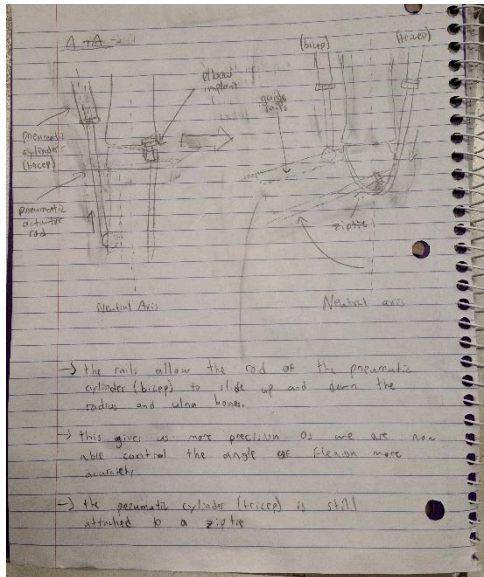 (bicep)
(tricep)
elbow
implant
guide
rails
pneumatic
cylinder
(bicep)
pneumatic
actuator
rod
ziptie
Neutral Axis
Neutral axis
→ the rails allow the rod of the pneumatic
cylinder (bicep) to slide up and down the
radius and ulna bones.
→ this gives us more precision as we are now
able control the angle of flexion more
accurately
→ the pneumatic cylinder (tricep) is still
attached to a ziptie